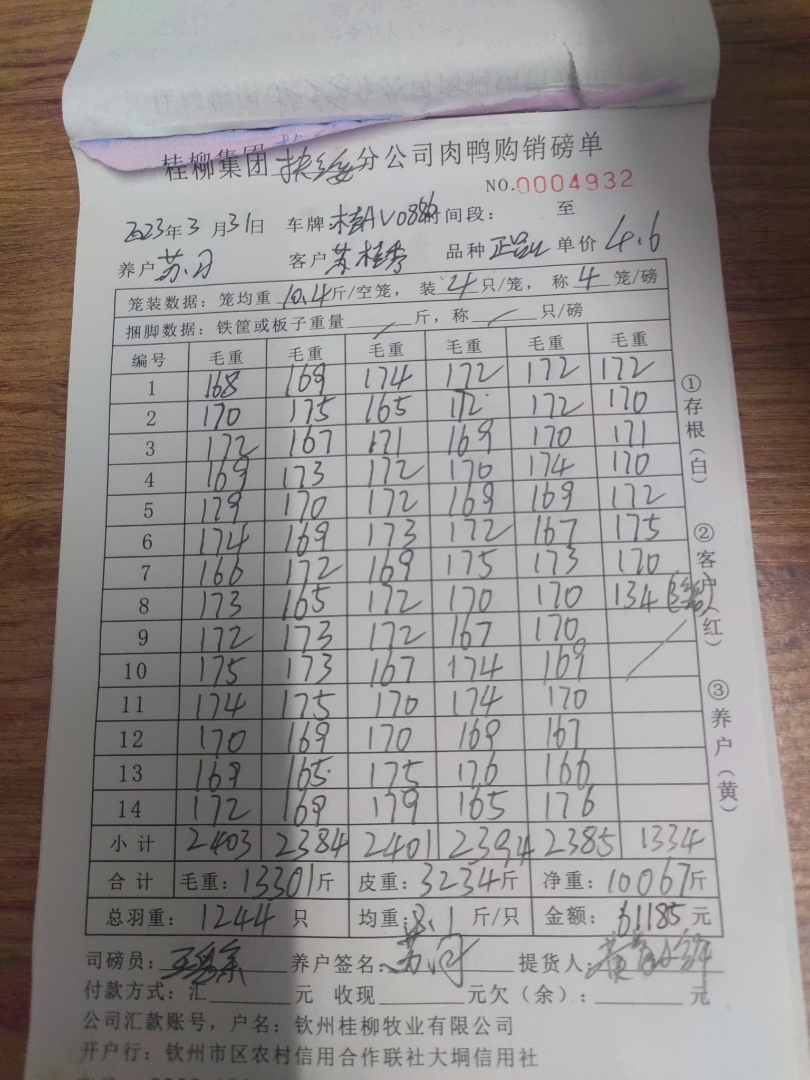 桂柳集团 分公司肉鸭购销磅单
NO.0004932
2023年3月31日 车牌:桂AV 时间段: 至
养户 苏 客户 苏桂秀 品种 正品 单价 4.6
笼装数据:笼均重 10.4 斤/空笼,装 4 只/笼,称 4 笼/磅
捆脚数据:铁筐或板子重量 / 斤,称 / 只/磅
编号 毛重 毛重 毛重 毛重 毛重 毛重
1 168 169 174 172 172 172
2 170 175 165 172 172 170
3 172 167 171 169 170 171
4 169 173 172 170 174 170
5 179 170 172 169 169 172
6 174 169 173 172 167 175
7 166 172 169 175 173 170
8 173 165 172 170 170 134
9 172 173 172 167 170
10 175 173 167 174 169
11 174 175 170 174 170
12 170 169 170 169 167
13 169 165 175 176 166
14 172 169 179 165 176
小计 2403 2384 2401 2394 2385 1334
合计 毛重:13301斤 皮重:3234斤 净重:10067斤
总羽重:1244 只 均重:8.1 斤/只 金额:61185 元
司磅员: 养户签名:苏 提货人:
付款方式:汇 元 收现 元欠(余): 元
公司汇款账号,户名:钦州桂柳牧业有限公司
开户行:钦州市区农村信用合作联社大垌信用社
①存根(白) ②客户(红) ③养户(黄)